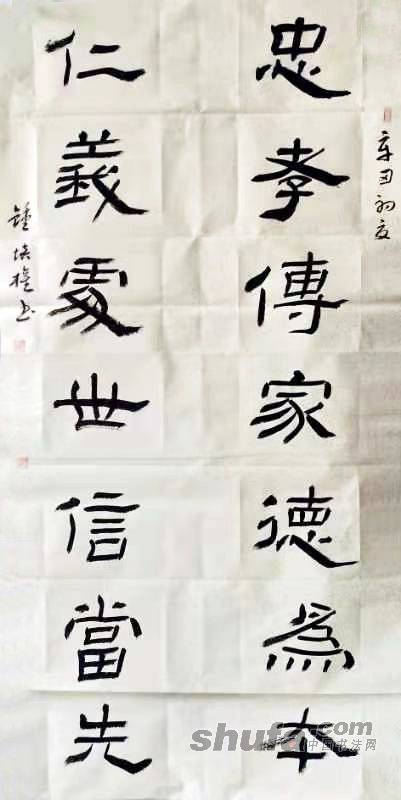 忠孝傳家德為本
辛丑初夏
仁義處世信當先
鍾培權書
shufa.com
中国书法网